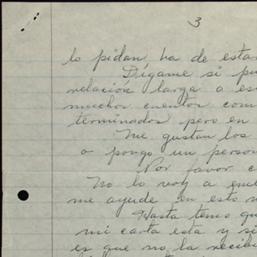 3
lo pidan, ha de estar
Dígame si pu
relación larga a es
muchos cuentos com
terminados pero en
Me gustan los
o pongo un person
Por favor c
No lo voy a
me ayude en esto n
Hasta temo qu
mi carta esta y si
es que no la recibi